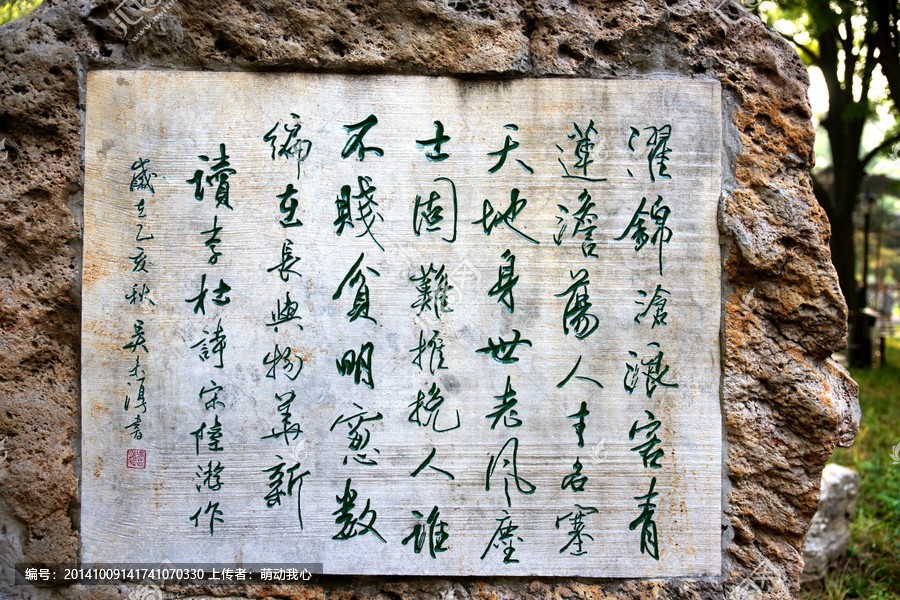 濯錦滄浪客青
蓮澹蕩人才名塞
天地身世老風塵
士固難推挽人誰
不賤貧明窓數
編在長與物華新
讀李杜詩 宋陸游作
歲在乙亥秋 吳未淳書
编号:20141009141741070330 上传者:萌动我心